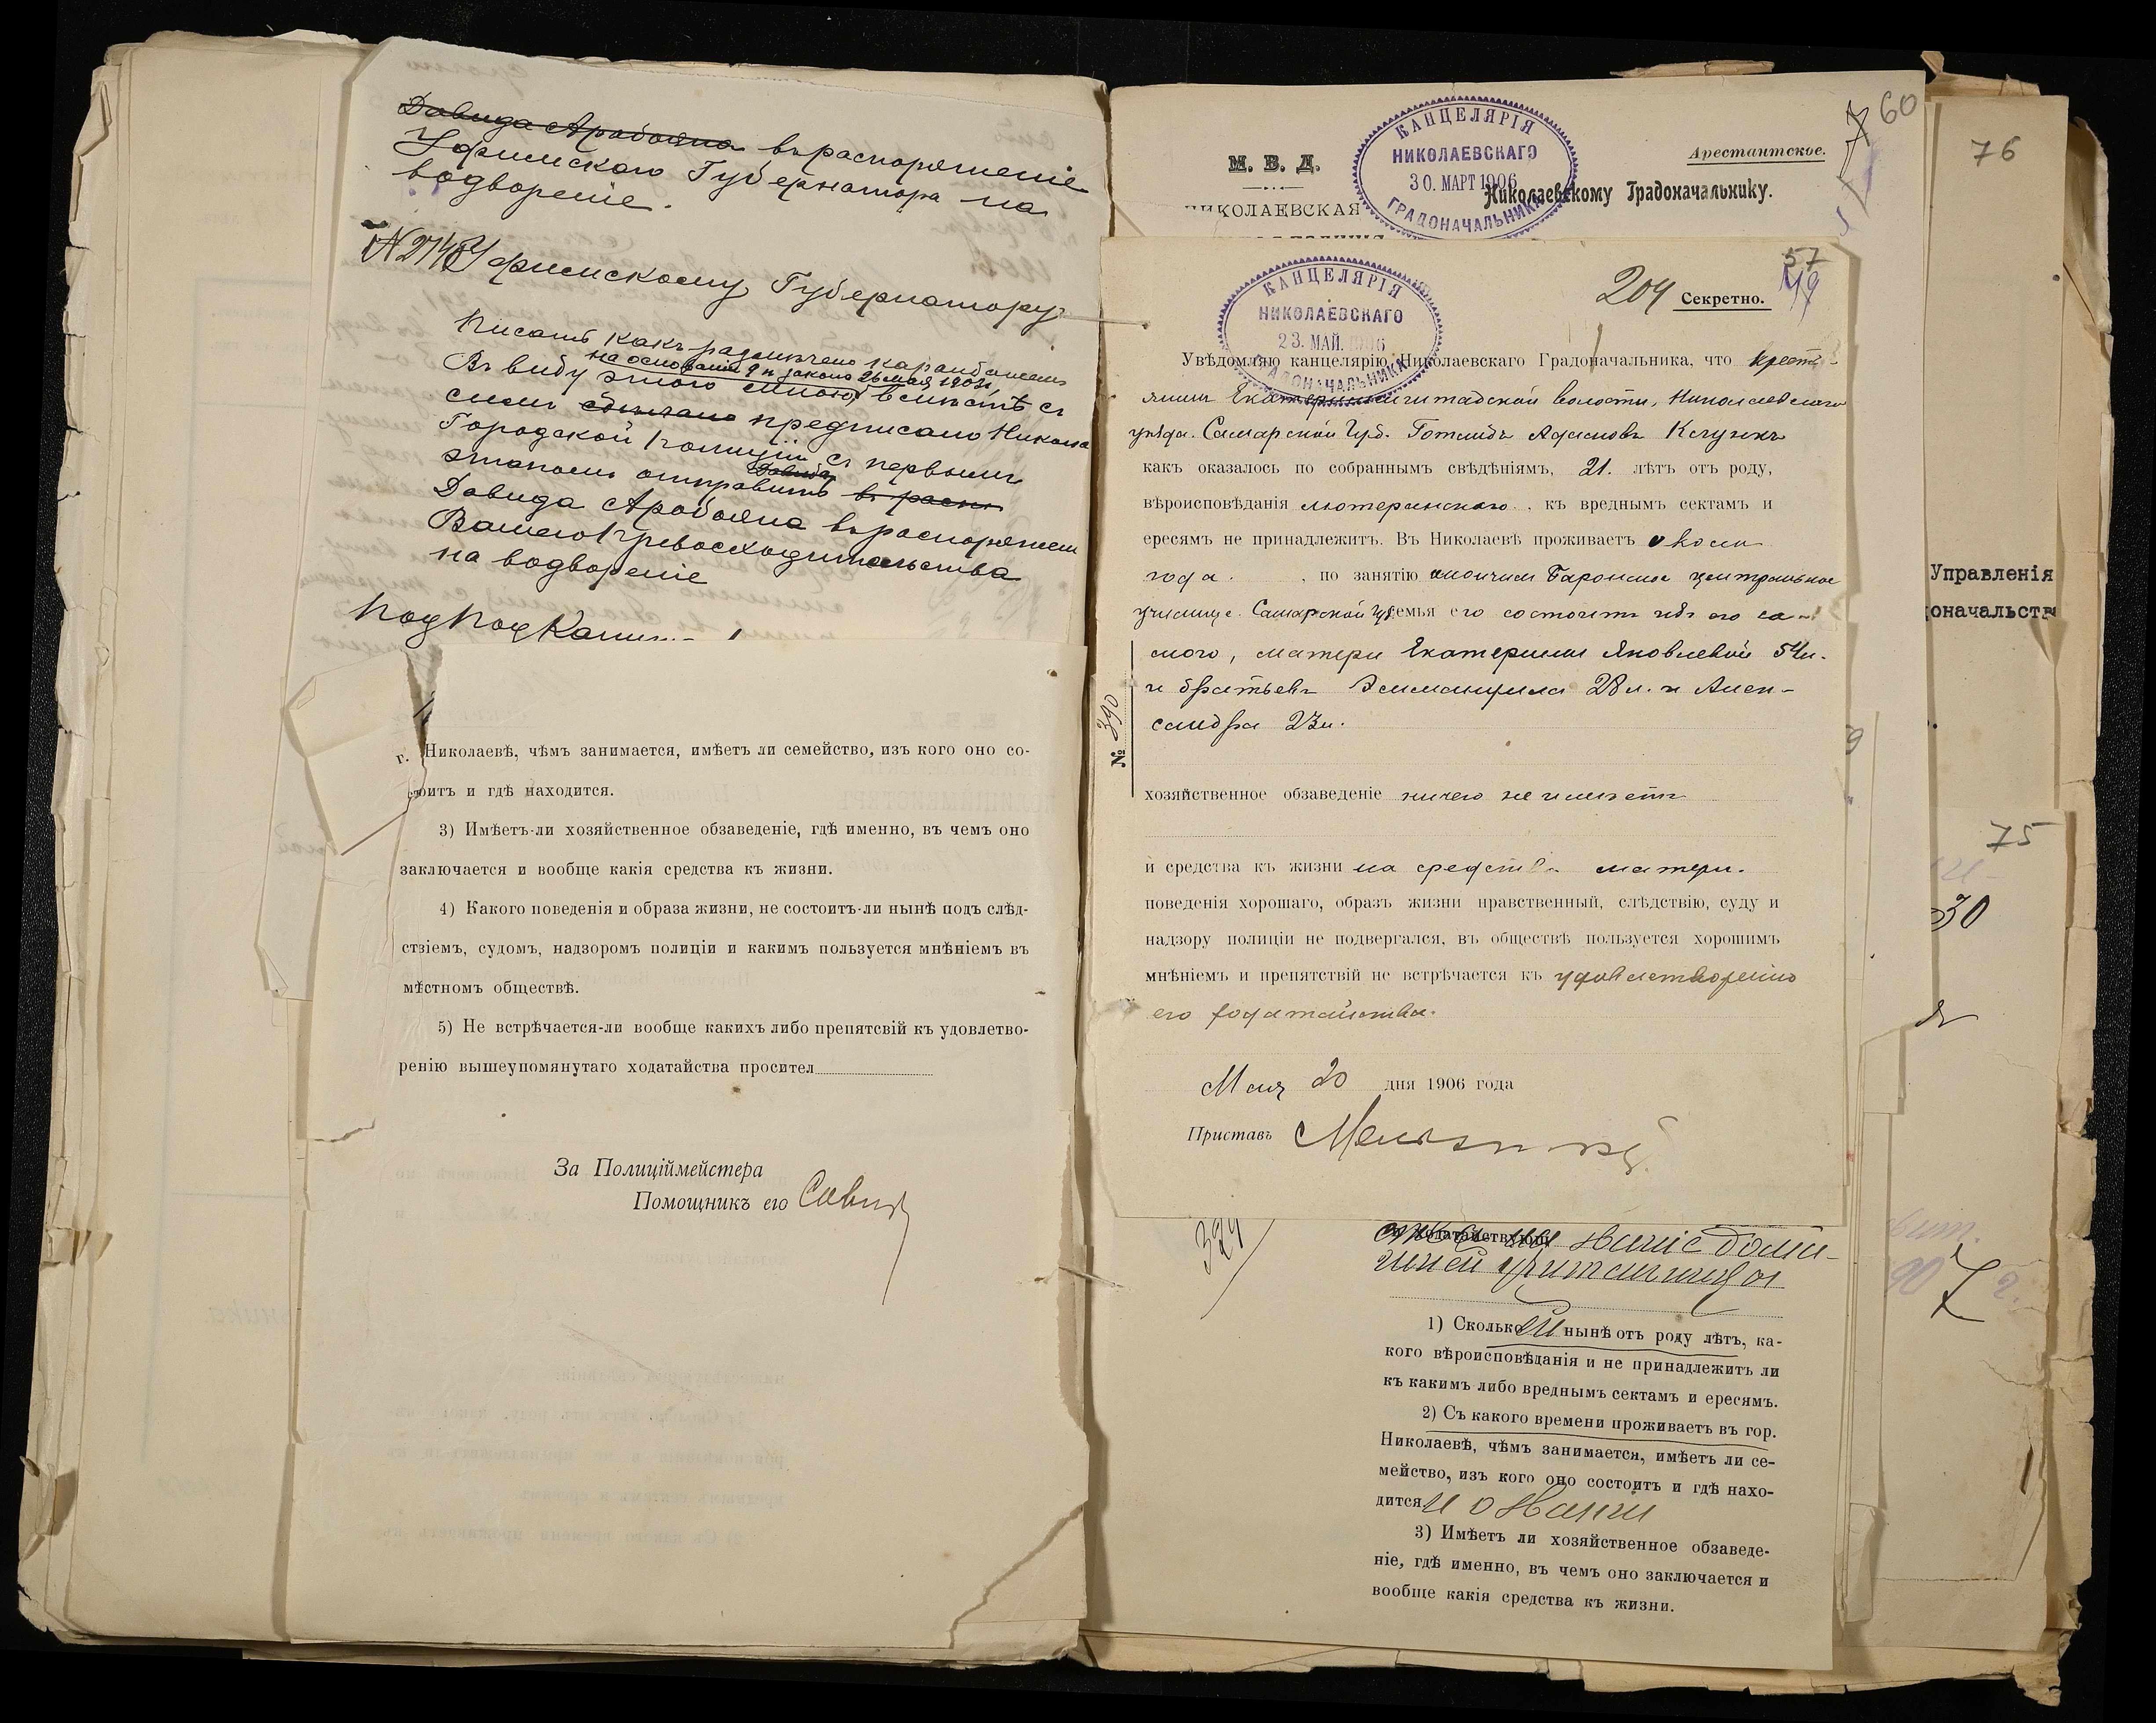 Давида Арабояна въ распоряженіе
Уфимскаго Губернатора на
водвореніе.
№ 2748 Уфимскому Губернатору
Писать какъ размѣчено карандашемъ
на основаніи 9 п. закона 26 мая 1903 г.
Въ виду этого мною вмѣстѣ съ
симъ сдѣлано предписано Никола
Городской Полиціи съ первымъ
этапомъ отправить въ расп
Давида
Давида Арабояна въ распоряжен
Вашего Превосходительства
на водвореніе
г. Николаевѣ, чѣмъ занимается, имѣетъ ли семейство, изъ кого оно со-
стоитъ и гдѣ находится.
3) Имѣетъ-ли хозяйственное обзаведеніе, гдѣ именно, въ чемъ оно
заключается и вообще какія средства къ жизни.
4) Какого поведенія и образа жизни, не состоитъ-ли нынѣ подъ слѣд-
ствіемъ, судомъ, надзоромъ полиціи и какимъ пользуется мнѣніемъ въ
мѣстномъ обществѣ.
5) Не встрѣчается-ли вообще какихъ либо препятсвій къ удовлетво-
ренію вышеупомянутаго ходатайства просител
За Полиціймейстера
Помощникъ его
60
М. В. Д.
НИКОЛАЕВСКАЯ
КАНЦЕЛЯРІЯ
НИКОЛАЕВСКАГО
30. МАРТ 1906
ГРАДОНАЧАЛЬНИКА
Арестантское.
Николаевскому Градоначальнику.
57
204 Секретно.
КАНЦЕЛЯРІЯ
НИКОЛАЕВСКАГО
23. МАЙ. 1906
ГРАДОНАЧАЛЬНИКА
Увѣдомляю канцелярію Николаевскаго Градоначальника, что крестья-
нинъ волости, Николаевскаго
уѣзда. Самарской Губ. Готлибъ Адамовъ
какъ оказалось по собраннымъ свѣдѣніямъ, 21. лѣтъ отъ роду,
вѣроисповѣданія лютеранскаго, къ вреднымъ сектамъ и
ересямъ не принадлежитъ. Въ Николаевѣ проживаетъ около
года. , по занятію окончилъ центральное
училище. Самарской Губ. семья его состоитъ изъ его са-
мого, матери Екатерины Яковлевой 54 л.
и братьевъ Эммануила 28 л. и Алек-
сандра 23 л.
№ 390
хозяйственное обзаведеніе ничего не имѣетъ
и средства къ жизни на средства матери.
поведенія хорошаго, образъ жизни нравственный, слѣдствію, суду и
надзору полиціи не подвергался, въ обществѣ пользуется хорошимъ
мнѣніемъ и препятствій не встрѣчается къ удовлетворенію
его ходатайства.
Мая 20 дня 1906 года
Приставъ
ходатайствующ
званіе домаш-
ней учительницы
1) Сколько ей нынѣ отъ роду лѣтъ, ка-
кого вѣроисповѣданія и не принадлежитъ ли
къ какимъ либо вреднымъ сектамъ и ересямъ.
2) Съ какого времени проживаетъ въ гор.
Николаевѣ, чѣмъ занимается, имѣетъ ли се-
мейство, изъ кого оно состоитъ и гдѣ нахо-
дится и о званіи
3) Имѣетъ ли хозяйственное обзаведе-
ніе, гдѣ именно, въ чемъ оно заключается и
вообще какія средства къ жизни.
76
Управленія
оначальств
75
30